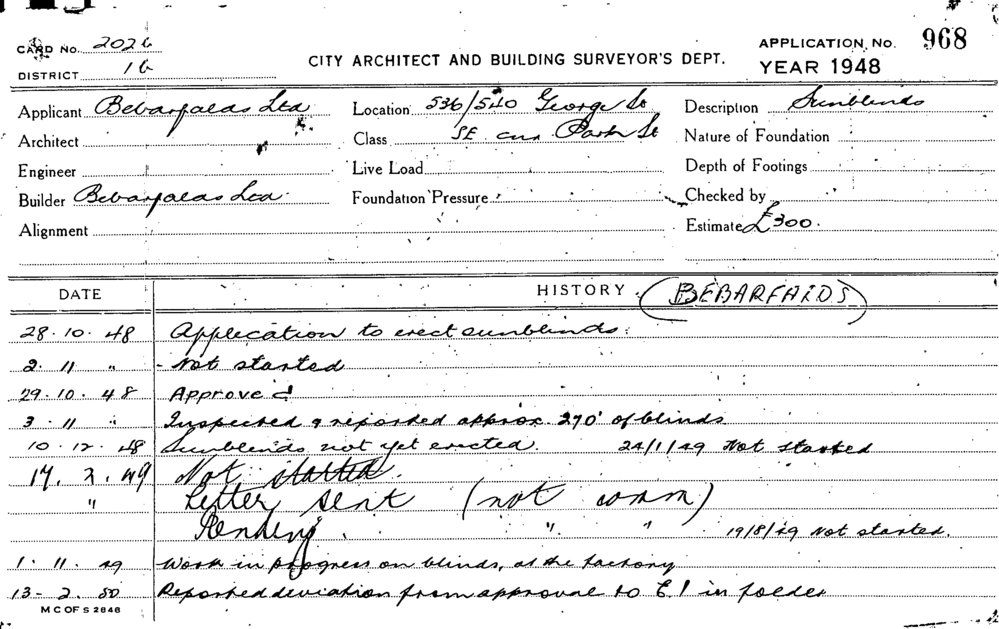 CARD NO. 2026
CITY ARCHITECT AND BUILDING SURVEYOR'S DEPT.
APPLICATION, NO. 968
DISTRICT 16
YEAR 1948
Applicant Bebarfalds Ltd
Location 536/540 George St
Description Sunblinds
Architect
Class SE cnr Park St
Nature of Foundation
Engineer
Live Load
Depth of Footings
Builder Bebarfalds Ltd.
Foundation Pressure
Checked by
Alignment
Estimate £300.
DATE
HISTORY. (BEBARFALDS)
28.10.48 Application to erect sunblinds.
2. 11 " - Not started
29.10.48 Approved
3. 11 " Inspected & reported approx. 270' of blinds
10.12.48 Sunblinds not yet erected. 24/1/49 Not started
17. 2. 49 Not started.
" Letter sent (not comm)
Pending. " " 19/8/49 Not started.
1. 11. 49 Work in progress on blinds, at the factory
13-2. 50 Reported deviation from approval to E.I in folder
M C OF S 2848